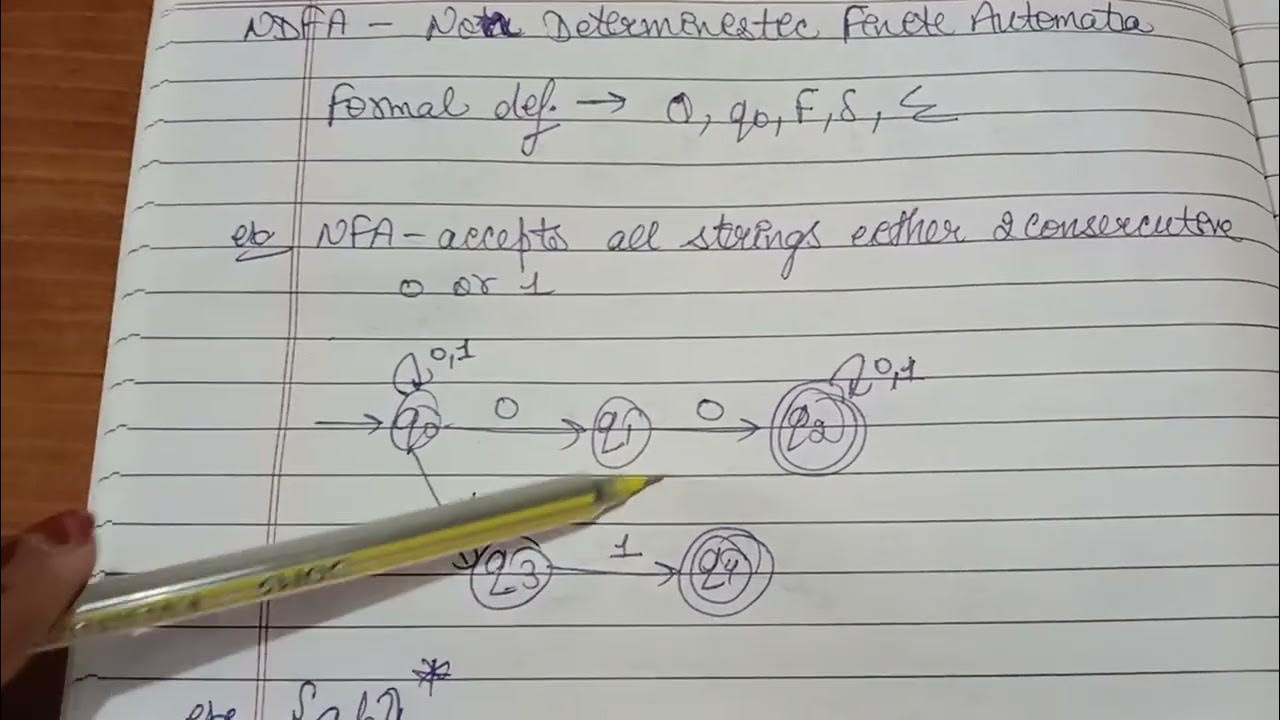 NDFA - Non Determenestec Fenete Automata
Formal def. → Q, q0, F, δ, Σ
ex NFA - accepts all strings eether 2 consercuteve
0 or 1
0,1 0,1
q0 0 q1 0 q2
q3 1 q4
*